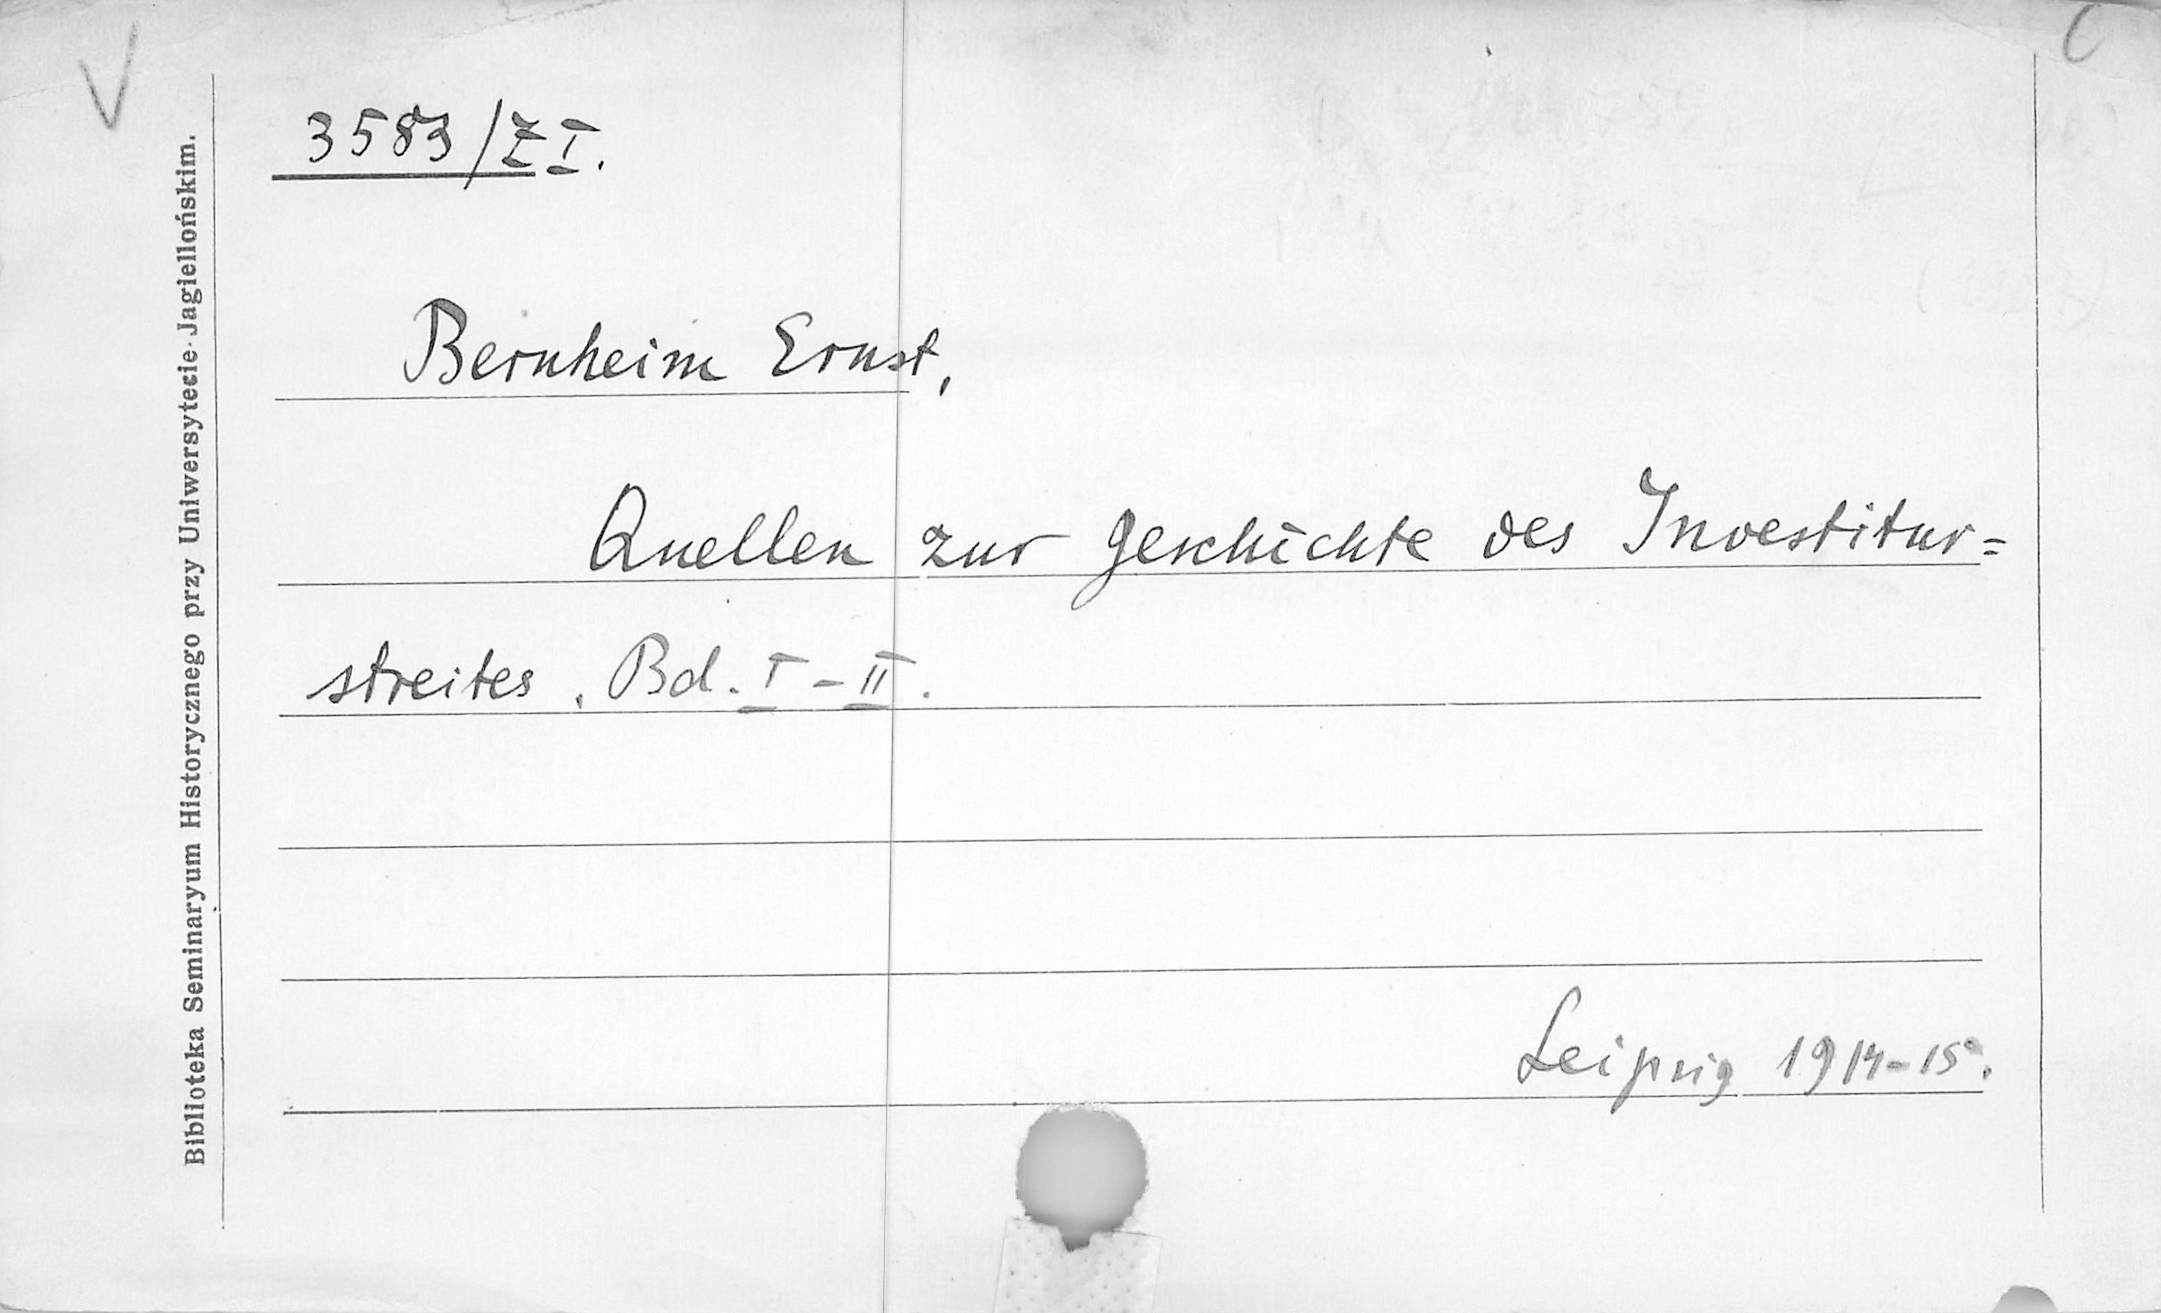 V
3583/Z I.
Bernheim Ernst,
Quellen zur Geschichte des Investitur=
streites, Bd. I-II.
Leipzig 1914-15.
Biblioteka Seminaryum Historycznego przy Uniwersytecie Jagiellońskim.